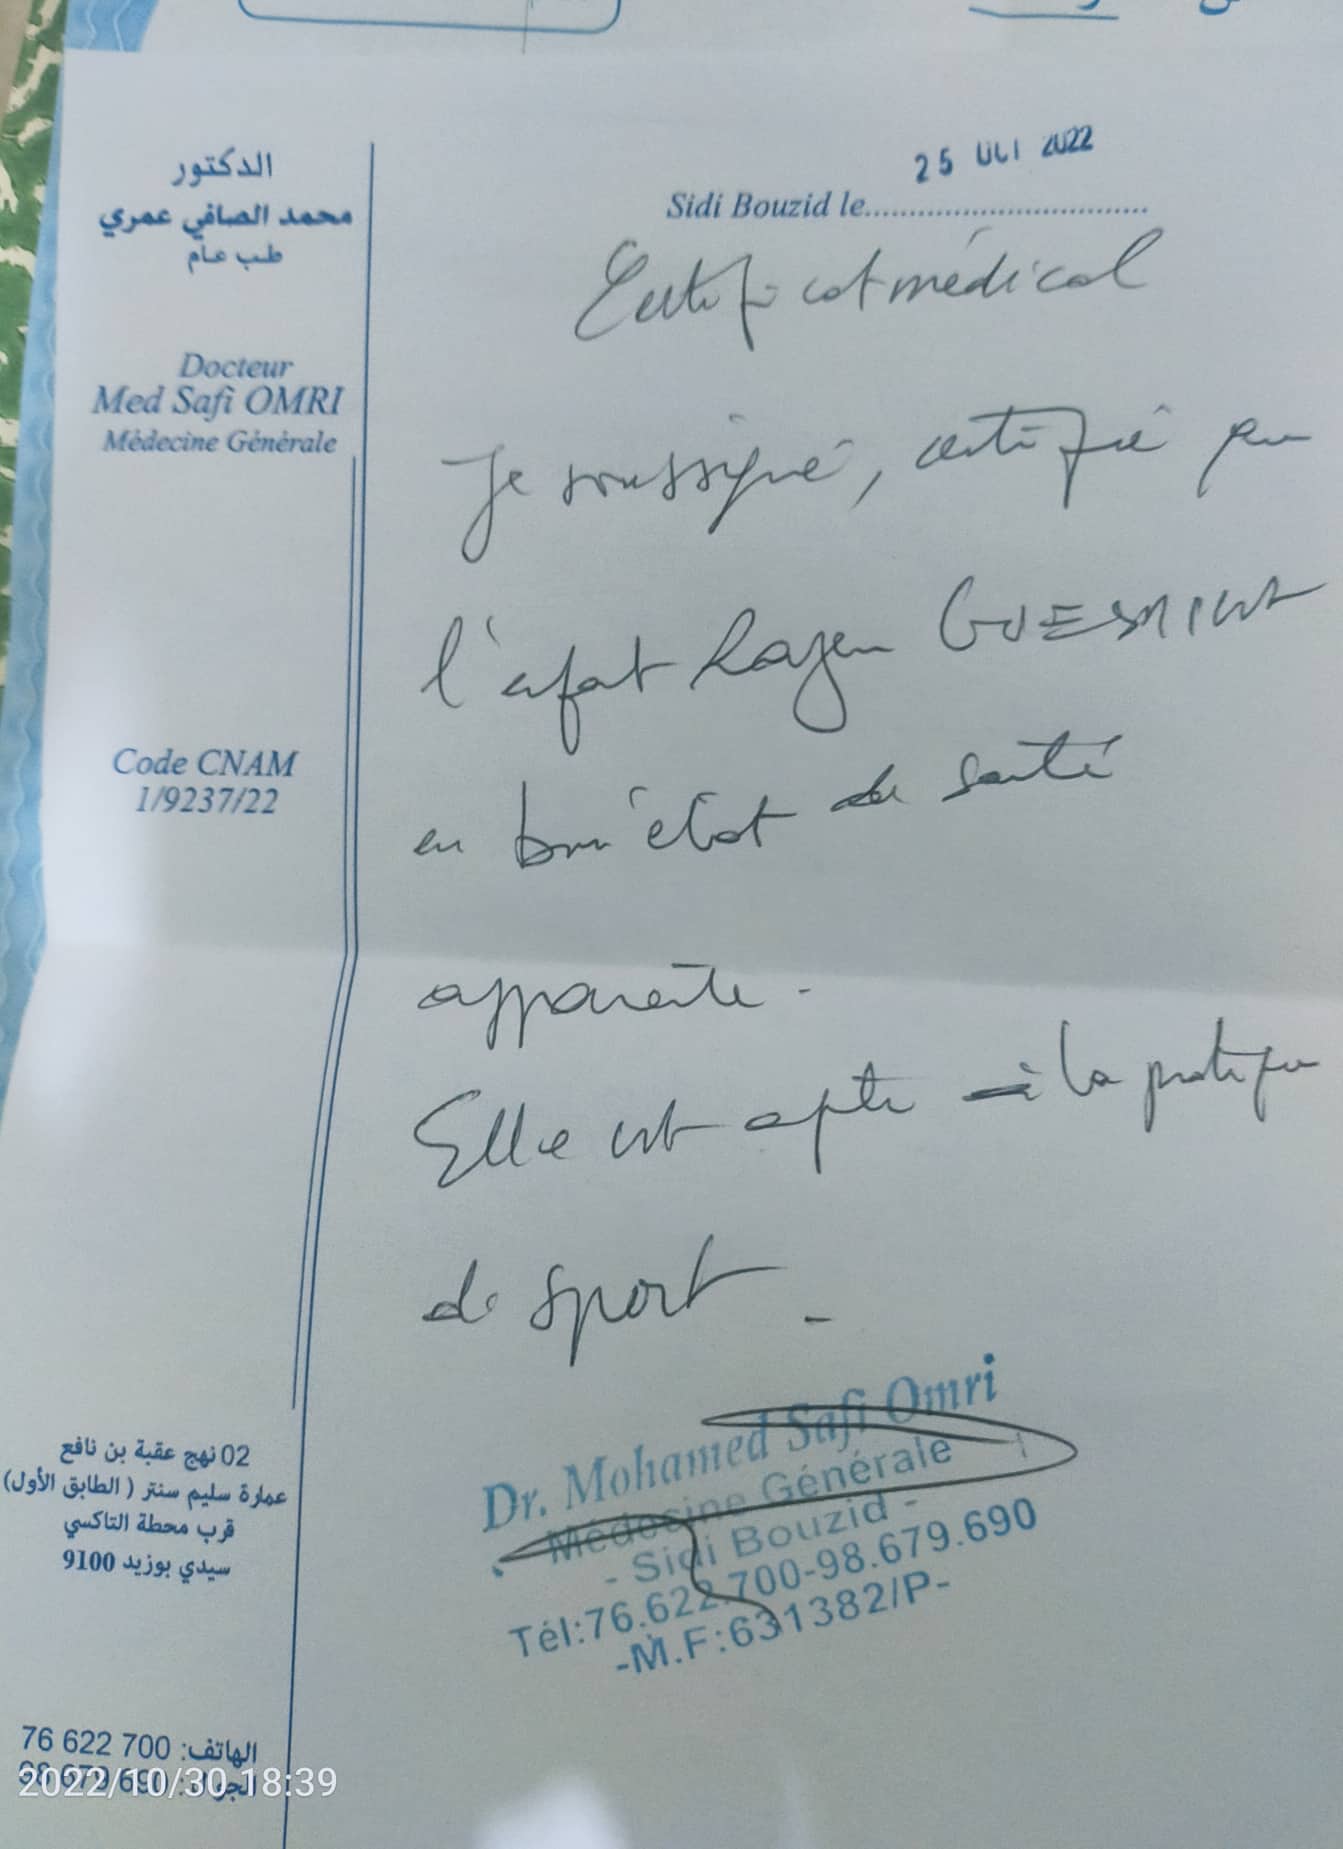 الدكتور
محمد الصافي عمري
طب عام
Docteur
Med Safi OMRI
Médecine Générale
Code CNAM
1/9237/22
02 نهج عقبة بن نافع
عمارة سليم سنتر ( الطابق الأول)
قرب محطة التاكسي
سيدي بوزيد 9100
الهاتف: 76 622 700
الجوال: 98 679 690
25 2022
Sidi Bouzid le
Certificat médical
Je soussigné, certifie que
l'enfant Rayen
en bon état de santé
apparente.
Elle est apte à la pratique
de sport
Dr. Mohamed Safi Omri
Médecine Générale
- Sidi Bouzid -
Tél:76.622.700-98.679.690
-M.F:631382/P-
2022/10/30 18:39